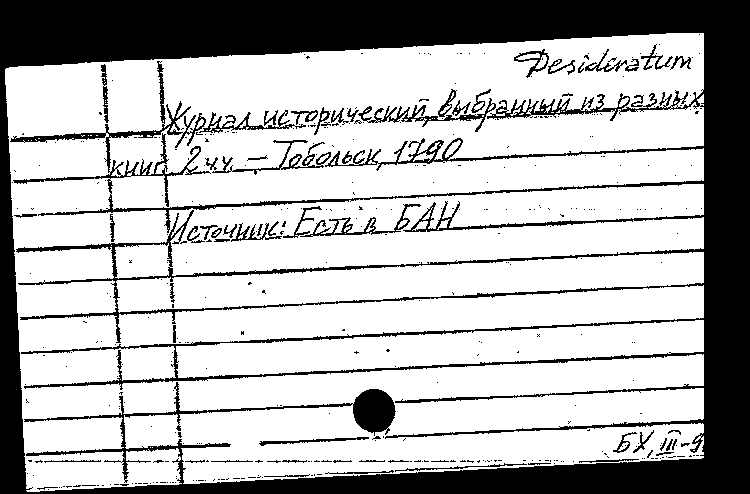 Desideratum
Журнал исторический, выбранный из разных
книг. 2 чч. – Тобольск, 1790
Источник: Есть в БАН
БХ, III-9